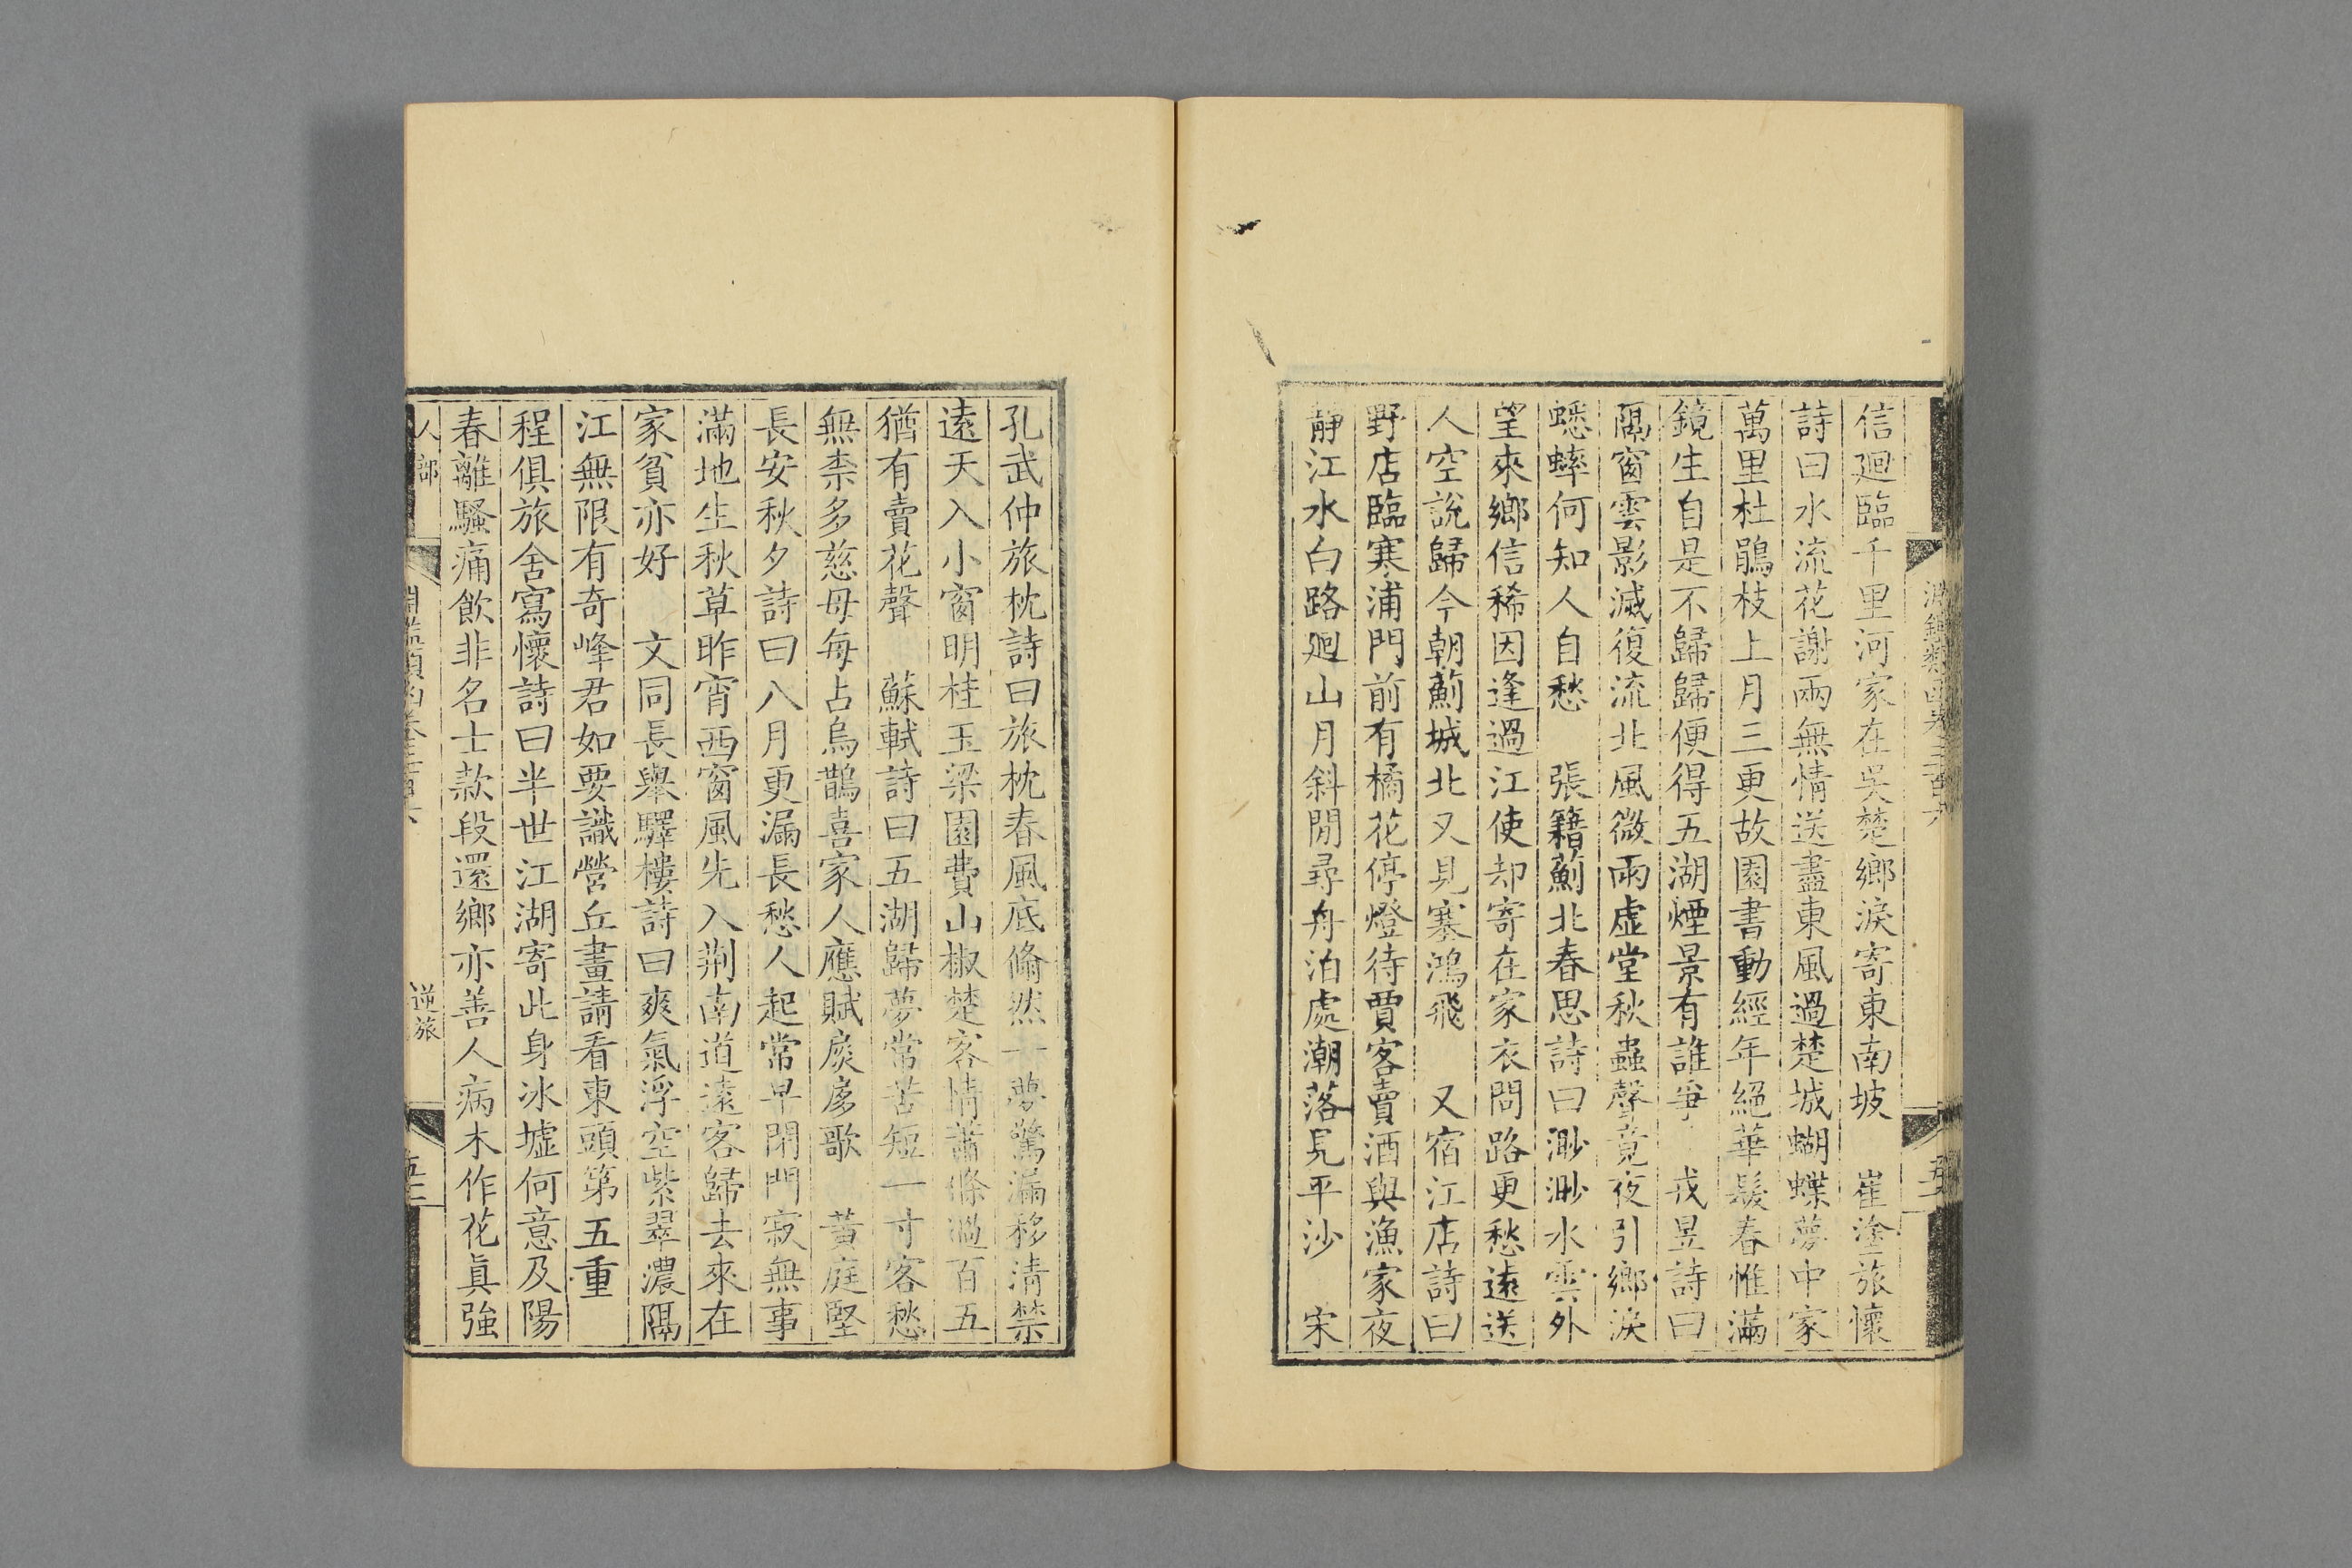 信廻臨千里河家在吳楚鄉淚寄東南坡　崔塗旅懷
詩曰水流花謝兩無情送盡東風過楚城蝴蝶夢中家
萬里杜鵑枝上月三更故園書動經年絕華髮春惟滿
鏡生自是不歸歸便得五湖煙景有誰爭　戎昱詩曰
隔窗雲影滅復流北風微雨虛堂秋蟲聲竟夜引鄉淚
蟋蟀何知人自愁　張籍薊北春思詩曰渺渺水雲外
望來鄉信稀因逢過江使却寄在家衣問路更愁遠送
人空說歸今朝薊城北又見塞鴻飛　又宿江店詩曰
野店臨寒浦門前有橘花停燈待賈客賣酒與漁家夜
靜江水白路廻山月斜閒尋舟泊處潮落見平沙　宋
孔武仲旅枕詩曰旅枕春風底翛然一夢驚漏移清禁
遠天入小窗明桂玉梁園費山椒楚客情蕭條過百五
猶有賣花聲　蘇軾詩曰五湖歸夢常苦短一寸客愁
無柰多慈母每占烏鵲喜家人應賦扊扅歌　黃庭堅
長安秋夕詩曰八月更漏長愁人起常早閉門寂無事
滿地生秋草昨宵西窗風先入荆南道遠客歸去來在
家貧亦好　文同長舉驛樓詩曰爽氣浮空紫翠濃隔
江無限有奇峰君如要識營丘畫請看東頭第五重
程俱旅舍寫懷詩曰半世江湖寄此身冰墟何意及陽
春離騷痛飲非名士款段還鄉亦善人病木作花眞強
人部
逆旅